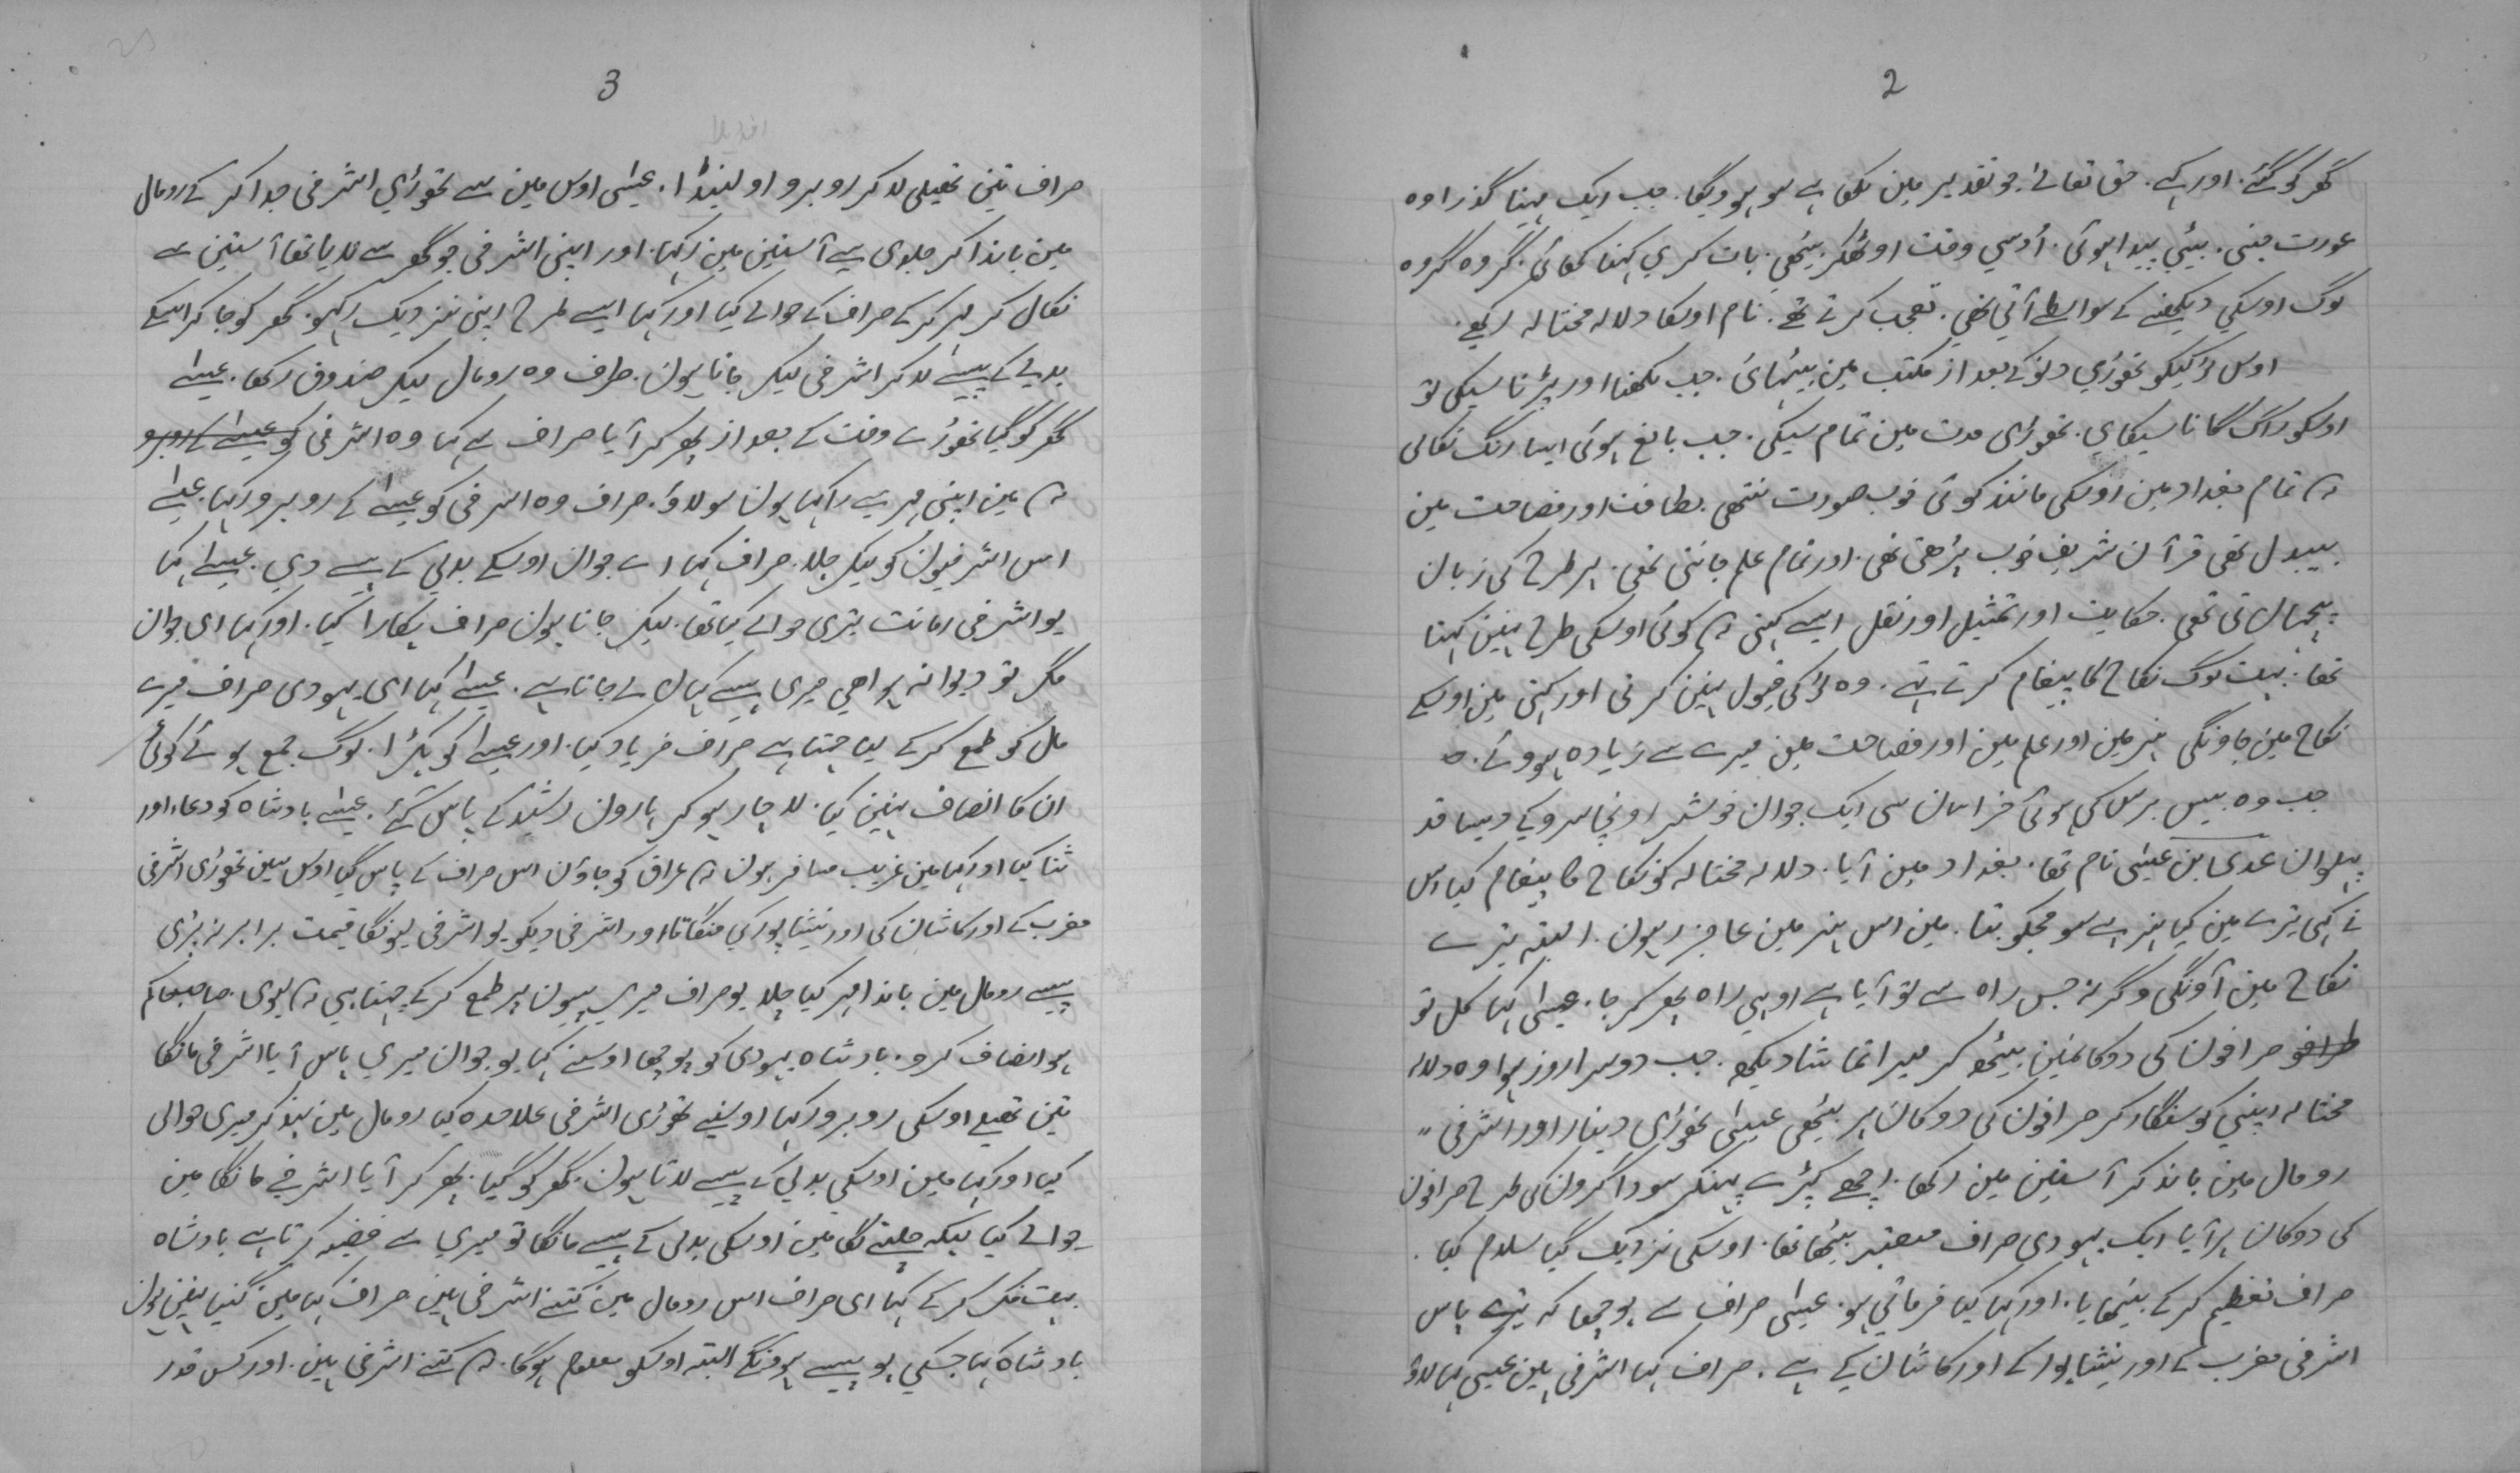 2
گھر کو گئے. اور کہے. حق تعالےٰ جو تقدیر مین لکھا ہے سو ہوویگا. جب ایک مہینا گذرا وہ
عورت جنی. بیٹی پیدا ہوئی. اُوسی وقت اوٹھکر بیٹھی. بات کری کھنا کھائی. گروہ گروہ
لوگ اوسکی دیکھنے کے سواسطے آتی تھی. تعجب کرتے تھے. نام اوسکا دلالہ محتالہ رکھے.
اوس لڑکیکو تھوڑی دنونکے بعد از مکتب مین بیٹہائ. جب لکھنا اور پڑنا سیکی تو
اوسکو راگ گانا سیکھای. تھوڑی مدت مین تمام سیکی. جب بالغ ہوئی ایسا رنگ نکالی
کہ تمام بغداد مین اوسکی مانند کوئی خوب صورت ننتھی. لطافت اور فصاحت مین
بیبدل تھی قرآن شریف خوب پڑھتی تھی. اور تمام علم جانتی تھی. ہر طرح کی زبان
پہچان تی تھی. حکایت اور تمثیل اور نقل ایسے کہتی کہ کوئی اوسکی طرح نہین کہتا
تھا. بہت لوگ نکاح کا پیغام کرتے تہے. وہ لڑکی قبول نہین کرتی اور کہتی مین اوسکے
نکاح مین جاونگی ہنر مین اور علم مین اور فصاحت مین میرے سے زیادہ ہووئے.
جب وہ بیس برس کی ہوئی خراسان سی ایک جوان خوشتر اونچا سرو کے ویسا قد
پہلوان عدی بن عیسٰی نام تھا. بغداد مین آیا. دلالہ محتالہ کو نکاح کا پیغام کیا اس
نے کہی تیرے مین کیا ہنر ہے سو مجکو بتا. مین اس ہنر مین عاجز رہون. البتہ تیرے
نکاح مین آونگی وگرنہ جس راہ سے تو آیا ہے اوہی راہ پھر کر جا. عیسٰی کہا کل تو
صرافون کی دوکانمین بیٹھ کر میرا تماشا دیکھہ. جب دوسرا روز ہوا وہ دلالہ
محتالہ اپنی کو سنگار کر صرافون کی دوکان پر بیٹھی عیسٰی تھوڑی دینار اور اشرفی
رومال مین باندکر آستین مین رکھا. اچھے کپڑے پہنکر سوداگرون کی طرح صرافون
کی دوکان پر آیا ایک یہودی صراف معتبر بیٹھا تھا. اوسکی نزدیک گیا سلام کیا.
صراف تعظیم کرکے بیٹھایا. اور کہا کیا فرماتی ہو. عیسٰی صراف سے پوچھا کہ تیرے پاس
اشرفی مغرب کے اور نیشاپور کے اور کاشان کے ہے. صراف کہا اشرفی ہین عیسٰی کہا لاؤ
3
صراف تین تھیلی لاکر روبرو اولینڈا. عیسٰی اوس مین سے تھوڑی اشرفی جدا کر کے رومال
مین باندا کر جلدی سے آستین مین رکہا. اور اپنی اشرفی جو گھر سے لایا تھا آستین سے
نکال کر مہر کرکے صراف کے حوالے کیا اور کہا ایسے طرح اپنی نزدیک رکہو. گھر کو جا کر اسکے
بدلے کے پیسے لاکر اشرفی لیکر جاتا ہون. صراف وہ رومال لیکر صندوق رکھا. عیسٰے
گھر کو گیا تھوڑے وقت کے بعد از پھر کر آیا صراف سے کہا وہ اشرفی کو عیسٰے کے روبرو
کہ مین اپنی مہر سے رکہا ہون سو لاؤ. صراف وہ اشرفی کو عیسٰے کے روبرو رکہا. عیسٰے
اس اشرفیون کو لیکر چلا. صراف کہا اے جوان اوسکے بدلے کے پیسے دی. عیسٰے کہا
یو اشرفی امانت تیری حوالے کیا تھا. لیکر جاتا ہون صراف پکارا کیا. اور کہا ای جوان
مگر تو دیوانہ ہوا ھی میری پیسے کہان لے جاتا ہے. عیسٰے کہا ای یہودی صراف میرے
مال کو طمع کرکے لیا چہتا ہے صراف فریاد کیا. اور عیسٰے کو پکڑا. لوگ جمع ہوئے کوئی
ان کا انصاف نہین کیا. لاچار ہو کر ہارون رشید کے پاس گئے. عیسٰے بادشاہ کو دعاء اور
ثنا کیا اور کہا مین غریب مسافر ہون کہ عراق کو جاون اس صراف کے پاس گیا اوس سین تھوڑی اشرفی
مغرب کے اور کاشان کی اور نیشاپور کی منگاتا اور اشرفی دیکو یو اشرفی لیونگا قیمت برابر نہ پڑی
پیسے رومال مین باندا مہر کیا چلا یو صراف میری پیسون پر طمع کرکے چہتا ہی کہ لیوی. صاحب حاکم
ہو انصاف کرو. بادشاہ یہودی کو پوچھا اوسنے کہا یو جوان میری پاس آیا اشرفی مانگا
تین تھیلے اوسکی روبرو رکہا اوسنے تھوڑی اشرفی علاحدہ کیا رومال مین بندکر میری حوالی
کیا اور کہا مین اوسکی بدلی کے پیسے لاتا ہون گھر کو گیا. پھر کر آیا اشرفے مانگا مین
حوالے کیا لیکہ چلتے لگا مین اوسکی بدلی کے پیسے مانگا تو میری سے قضیہ کرتا ہے بادشاہ
بہت فکر کرکے کہا ای صراف اس رومال مین کتنے اشرفی ہین صراف کہا مین گنیا نہین ہون
بادشاہ کہا جسکی یو پیسے ہونگے البتہ اوسکو معلوم ہوگا. کہ کتنے اشرفی ہین. اور کس قدر